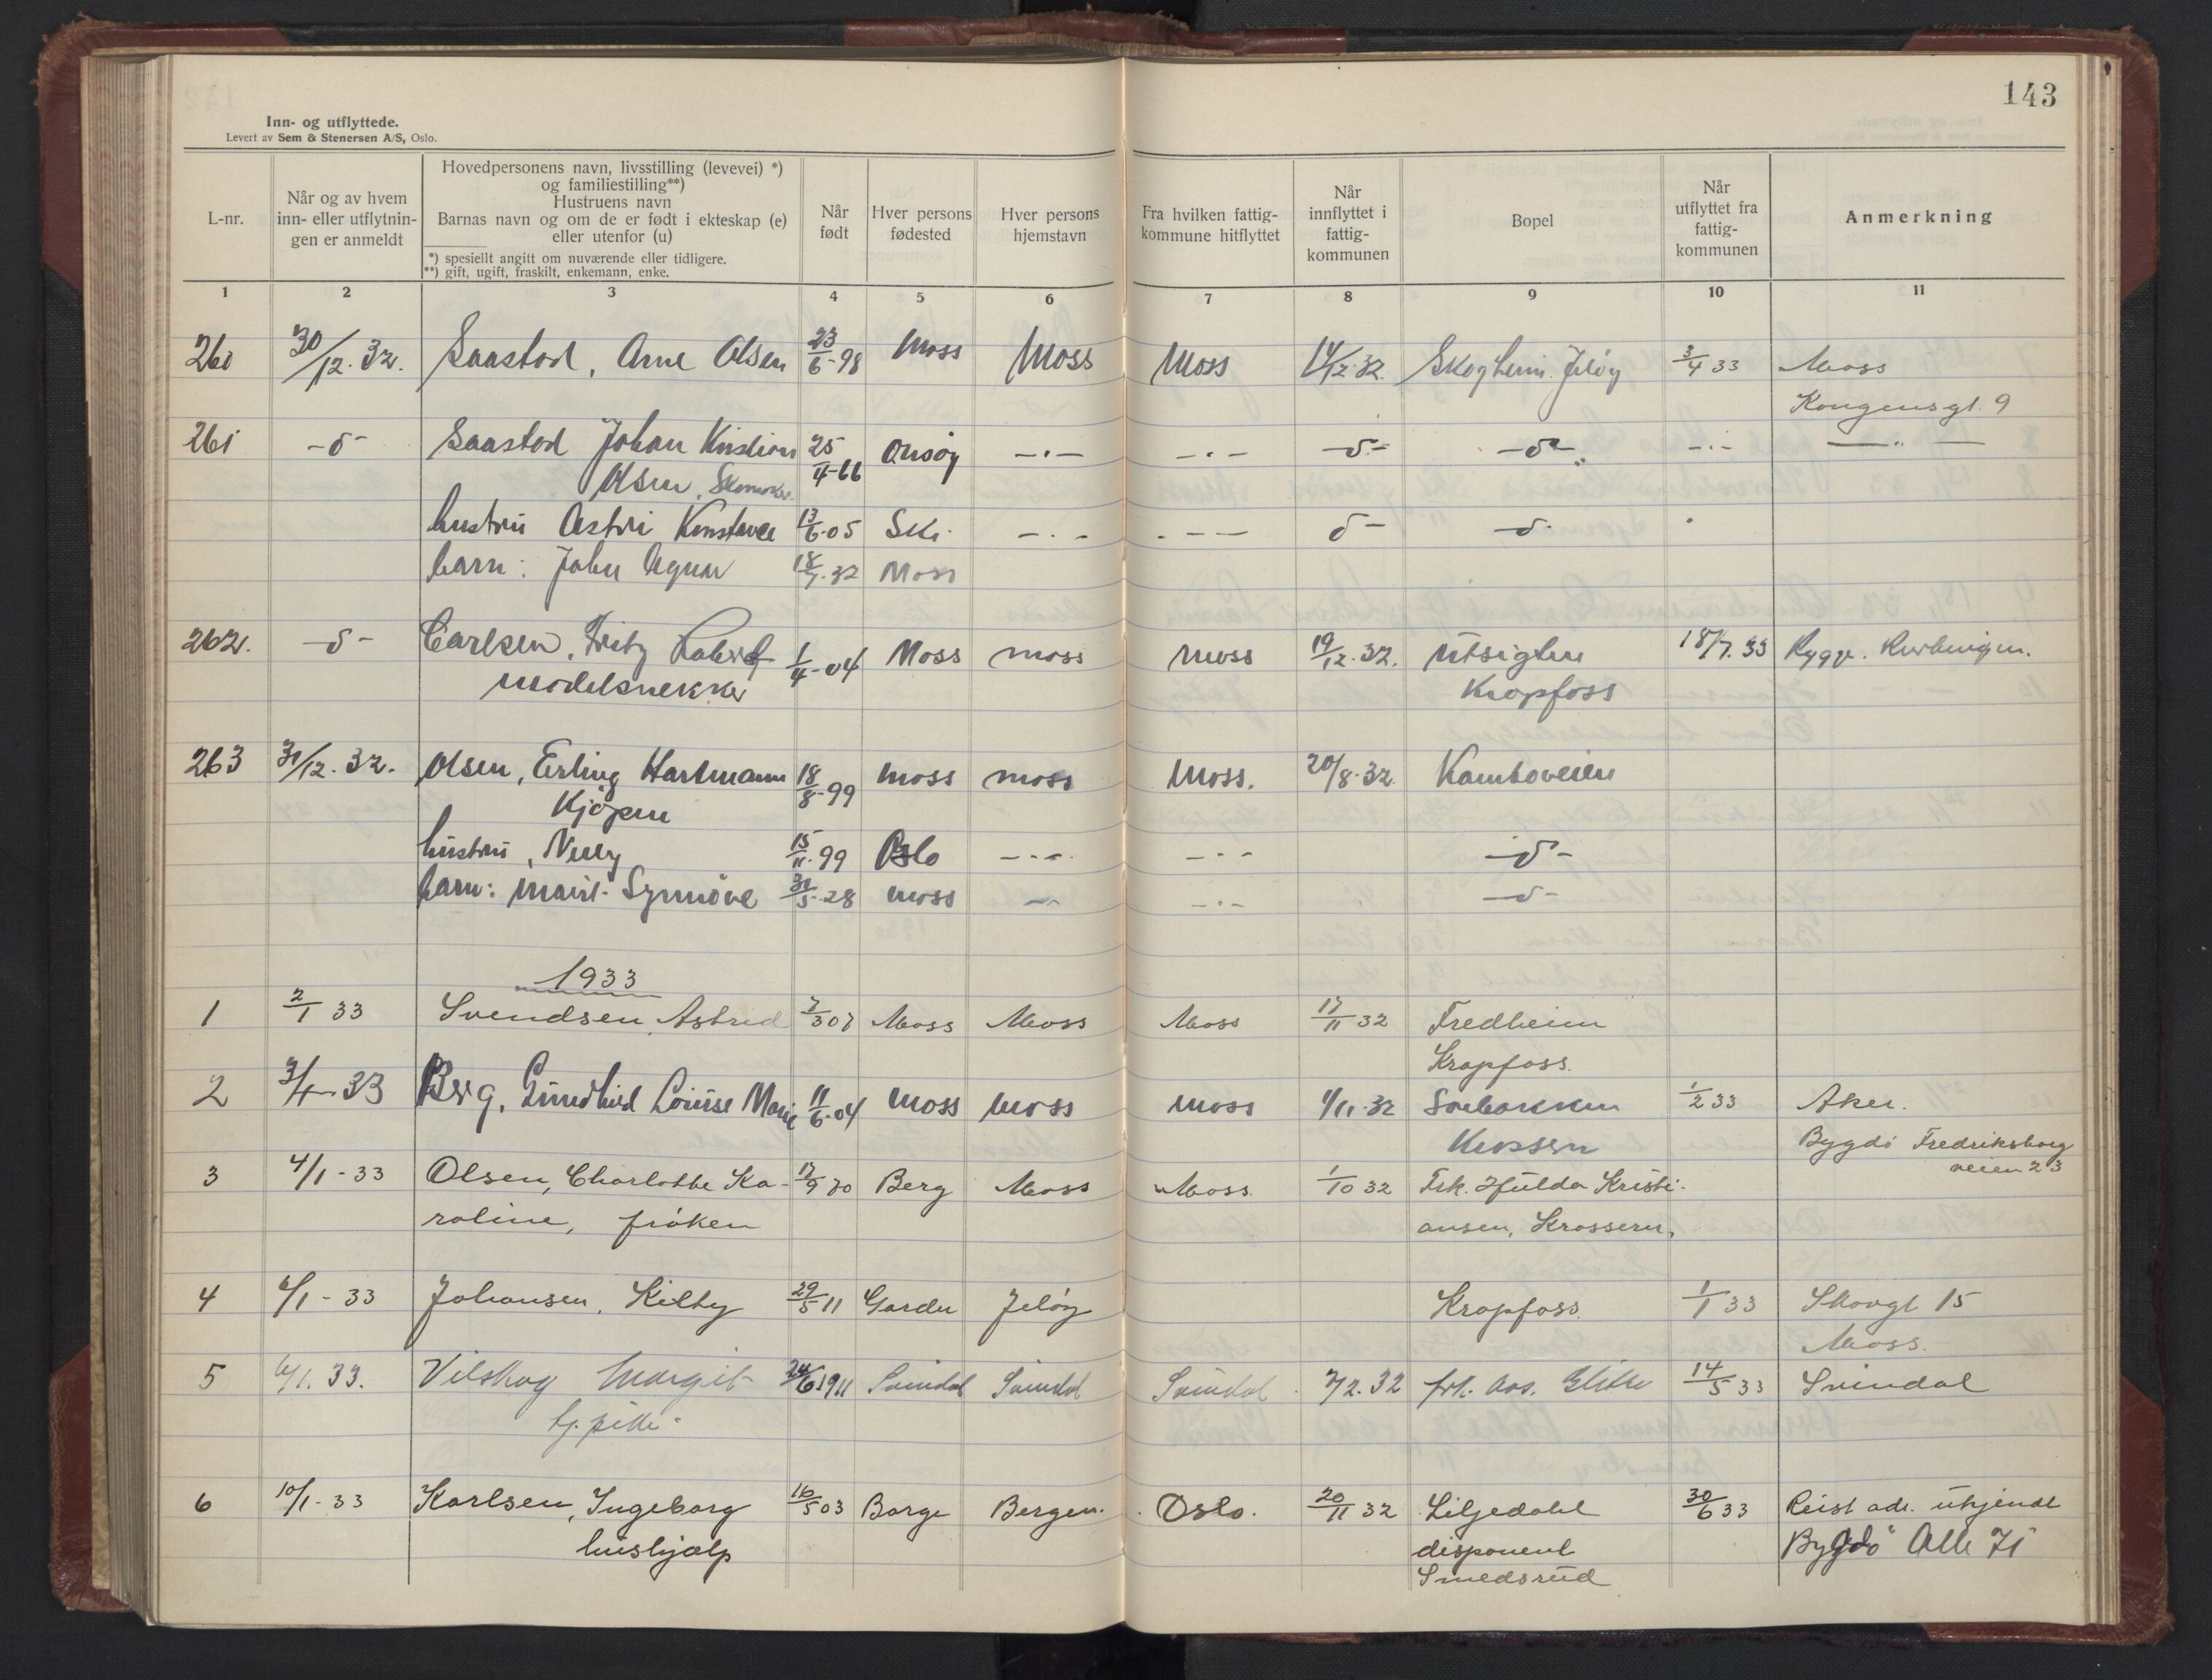 143
Inn- og utflyttede.
Levert av Sem & Stenersen A/S, Oslo.
L-nr.
Når og av hvem inn- eller utflytnin-gen er anmeldt
Hovedpersonens navn, livsstilling (levevei) *)
og familiestilling**)
Hustruens navn
Barnas navn og om de er født i ekteskap (e)
eller utenfor (u)
*) spesiellt angitt om nuværende eller tidligere.
**) gift, ugift, fraskilt, enkemann, enke.
Når født
Hver persons fødested
Hver persons hjemstavn
Fra hvilken fattig-kommune hitflyttet
Når innflyttet i fattig-kommunen
Bopel
Når utflyttet fra fattig-kommunen
Anmerkning
1 2 3 4 5 6 7 8 9 10 11
260 30/12.32. Saastad, Arne Olsen 23/6-98 Moss Moss Moss 14/12.32. Skogheim. Jeløy 3/4 33 Moss
Kongensgt. 9
261 -o- Saastad Johan Kristian 25/4-66 Onsøy -"- -"- -o- -o- -"- -"-
Olsen, Skomaker
hustru Astri Konstance 13/6-05 Ski -"- -"- o- -o-
barn: John Agnar 18/7.32 Moss
262. -o- Carlsen, Fritz 1/4-04 Moss Moss Moss 19/12.32. Utsigten 18/7.33 Rygge.
modelsnekker Kropfoss
263 31/12.32. Olsen, Erling Hartmann 18/8-99 Moss Moss Moss. 20/8.32 Kamboveien
Kjøpm
hustru, Nelly 15/11.99 Oslo -"- -"- -o-
barn: Marit-Synnöve 31/5.28 Moss -"- -"- -o-
1933
1 2/1 33 Svendsen, Astrid 7/3 07 Moss Moss Moss 17/11 32 Fredheim
Kropfoss.
2 3/1-33 Berg, Louise Marie 11/6-04 Moss Moss Moss 1/11.32 Solbakken 1/2 33 Aker.
Krossern Bygdö Fredriksborg
veien 23
3 4/1-33 Olsen, Charlotte Ka- 17/9 70 Berg Moss Moss. 1/10 32 Frk. Hulda Kristi-
roline, frøken ansen, Krossern.
4 6/1-33 Johansen, Kitty 29/5 11 Garder Jeløy Kropfoss. 1/1 33 Skovgt 15
Moss.
5 6/1.33. Vilskog Margit 24/6 1911 Svindal Svindal Svindal 7/2.32 frk. Aas. 14/5 33 Svindal
tj.pike.
6 10/1-33 Karlsen, Ingeborg 16/5 03 Borge Bergen. Oslo. 20/11 32 Liljedahl 30/6 33 Reist adr. ukjendt
hushjælp disponent Bygdö Alle 71
Smedsrud